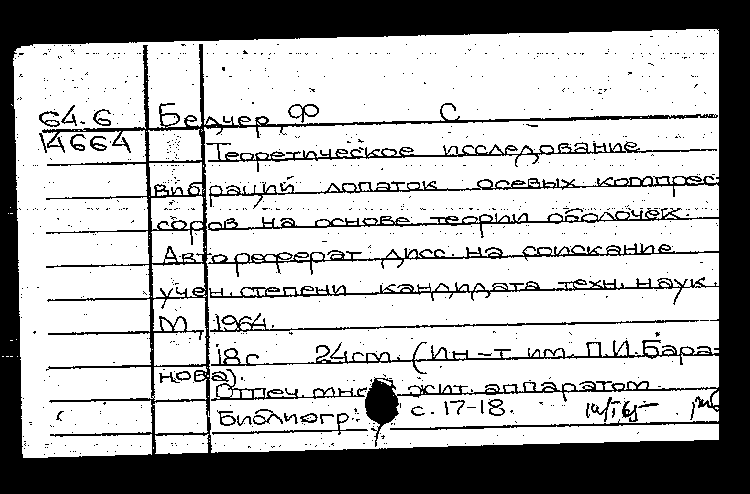 64.6 Бедчер, Ф С
14664 Теоретическое исследование
вибраций лопаток осевых компрес-
соров на основе теории оболочек.
Автореферат дисс. на соискание
учен. степени кандидата техн. наук.
М., 1964.
18 с 24 см. (Ин-т им. П.И.Бара-
нова).
Отпеч. множит. аппаратом.
Библиогр: с. 17-18.